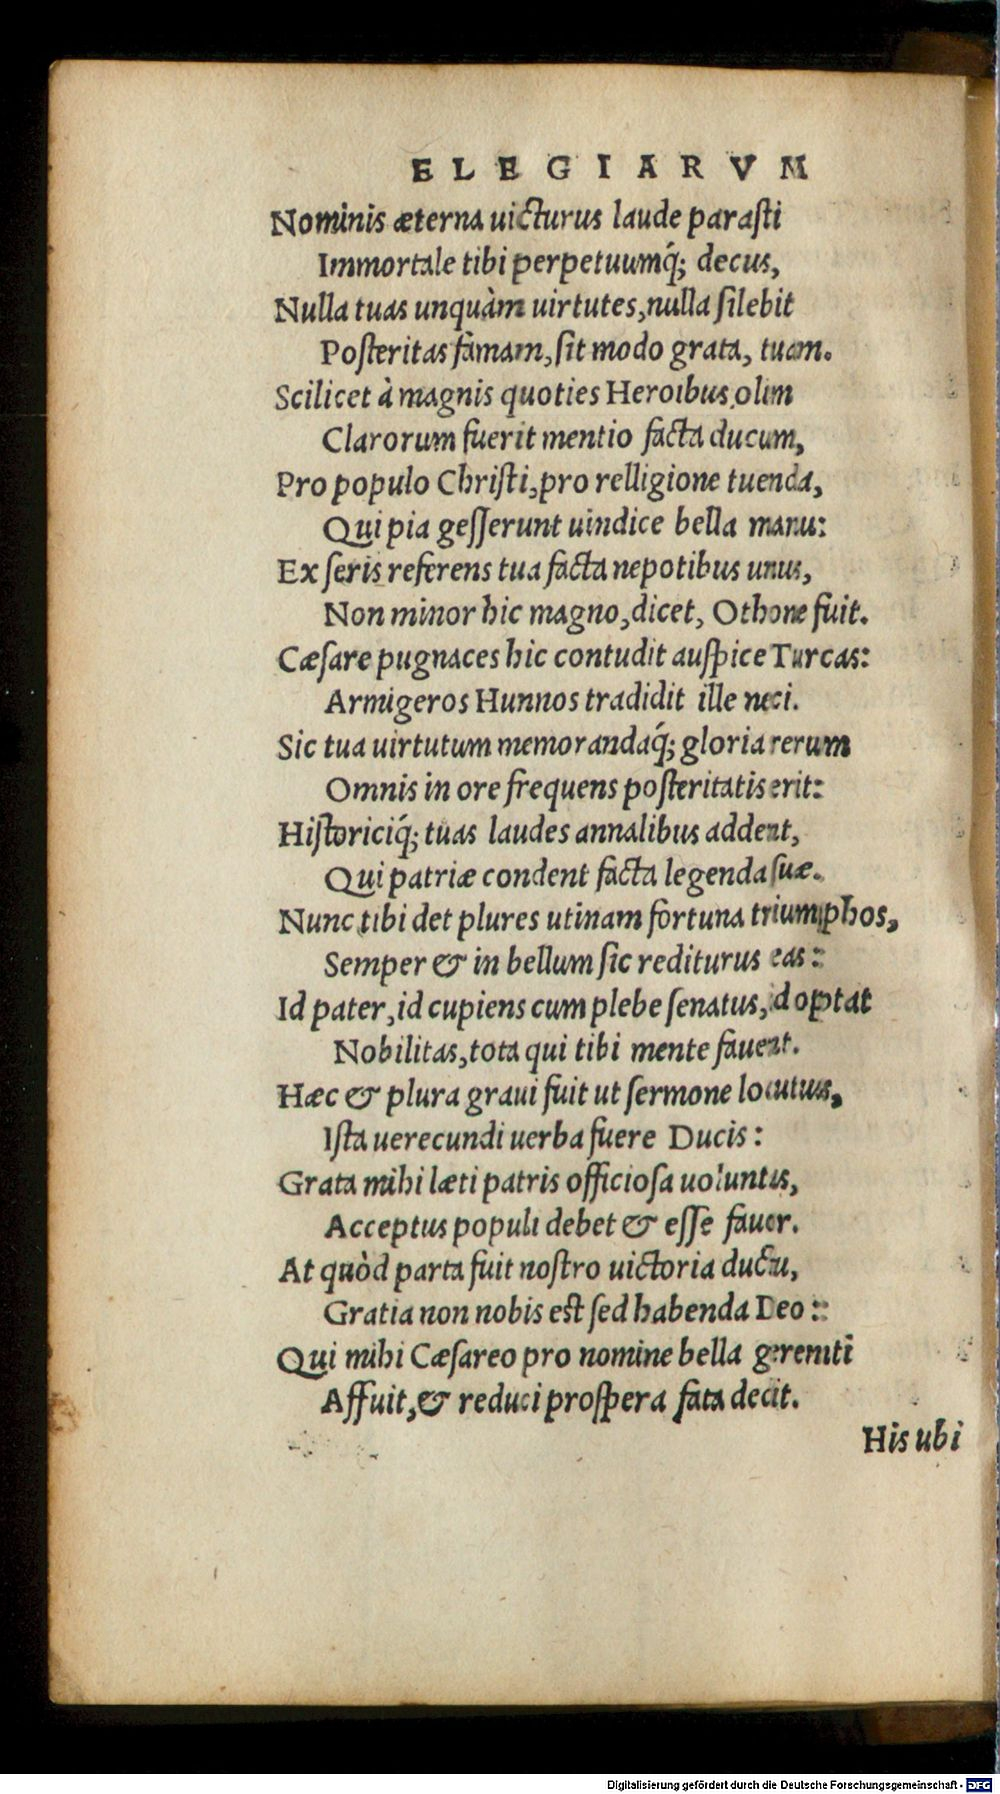 ELEGIARVM
Nominis æterna uicturus laude parasti
Immortale tibi perpetuumq́; decus,
Nulla tuas unquàm uirtutes, nulla silebit
Posteritas famam, sit modo grata, tuam.
Scilicet à magnis quoties Heroibus olim
Clarorum fuerit mentio facta ducum,
Pro populo Christi, pro relligione tuenda,
Qui pia gesserunt uindice bella manu:
Ex seris referens tua facta nepotibus unus,
Non minor hic magno, dicet, Othone fuit.
Cæsare pugnaces hic contudit auspice Turcas:
Armigeros Hunnos tradidit ille neci.
Sic tua uirtutum memorandaq́; gloria rerum
Omnis in ore frequens posteritatis erit:
Historiciq́; tuas laudes annalibus addent,
Qui patriæ condent facta legenda suæ.
Nunc tibi det plures utinam fortuna triumphos,
Semper & in bellum sic rediturus eas:
Id pater, id cupiens cum plebe senatus, id optat
Nobilitas, tota qui tibi mente fauent.
Hæc & plura graui fuit ut sermone locutus,
Ista uerecundi uerba fuere Ducis:
Grata mihi læti patris officiosa uoluntas,
Acceptus populi debet & esse fauor.
At quòd parta fuit nostro uictoria ductu,
Gratia non nobis est sed habenda Deo:
Qui mihi Cæsareo pro nomine bella gerenti
Affuit, & reduci prospera fata dedit.
His ubi
Digitalisierung gefördert durch die Deutsche Forschungsgemeinschaft - DFG